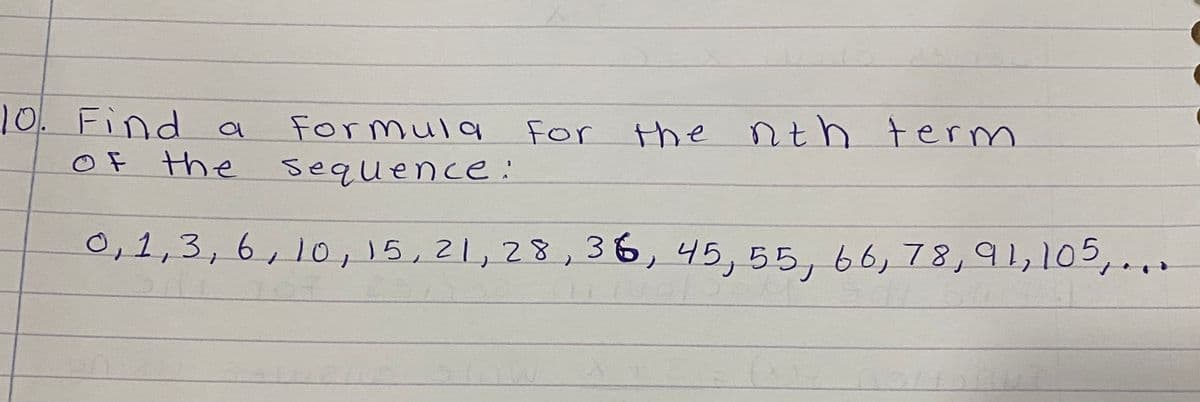 10. Find a formula for the nth term
of the sequence:
0,1,3,6,10,15,21,28,36,45,55,66,78,91,105,...